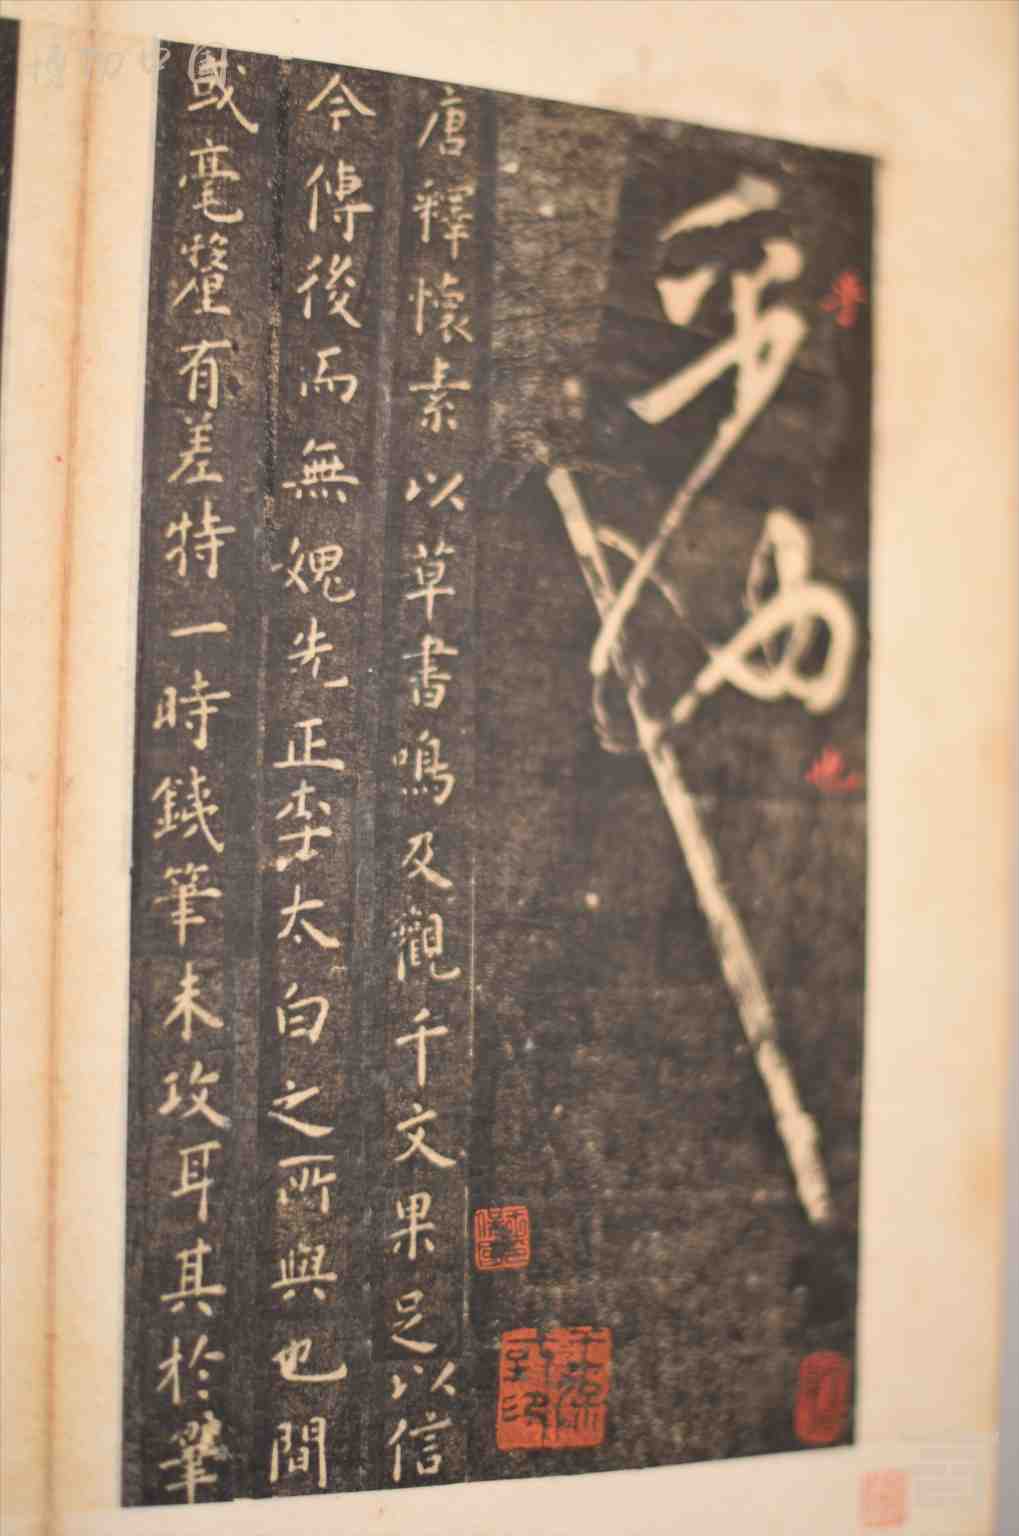 乎也
者
也
唐釋懷素以草書鳴及觀千文果足以信
今傳後而無媿先正李太白之所與也間
或毫釐有差特一時鋟筆未攻耳其於筆
博物中国